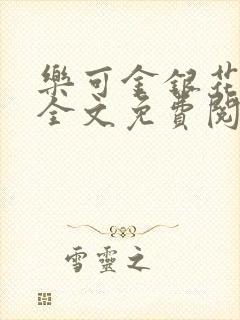 樂可金銀花
全文免費閱
雪靈之